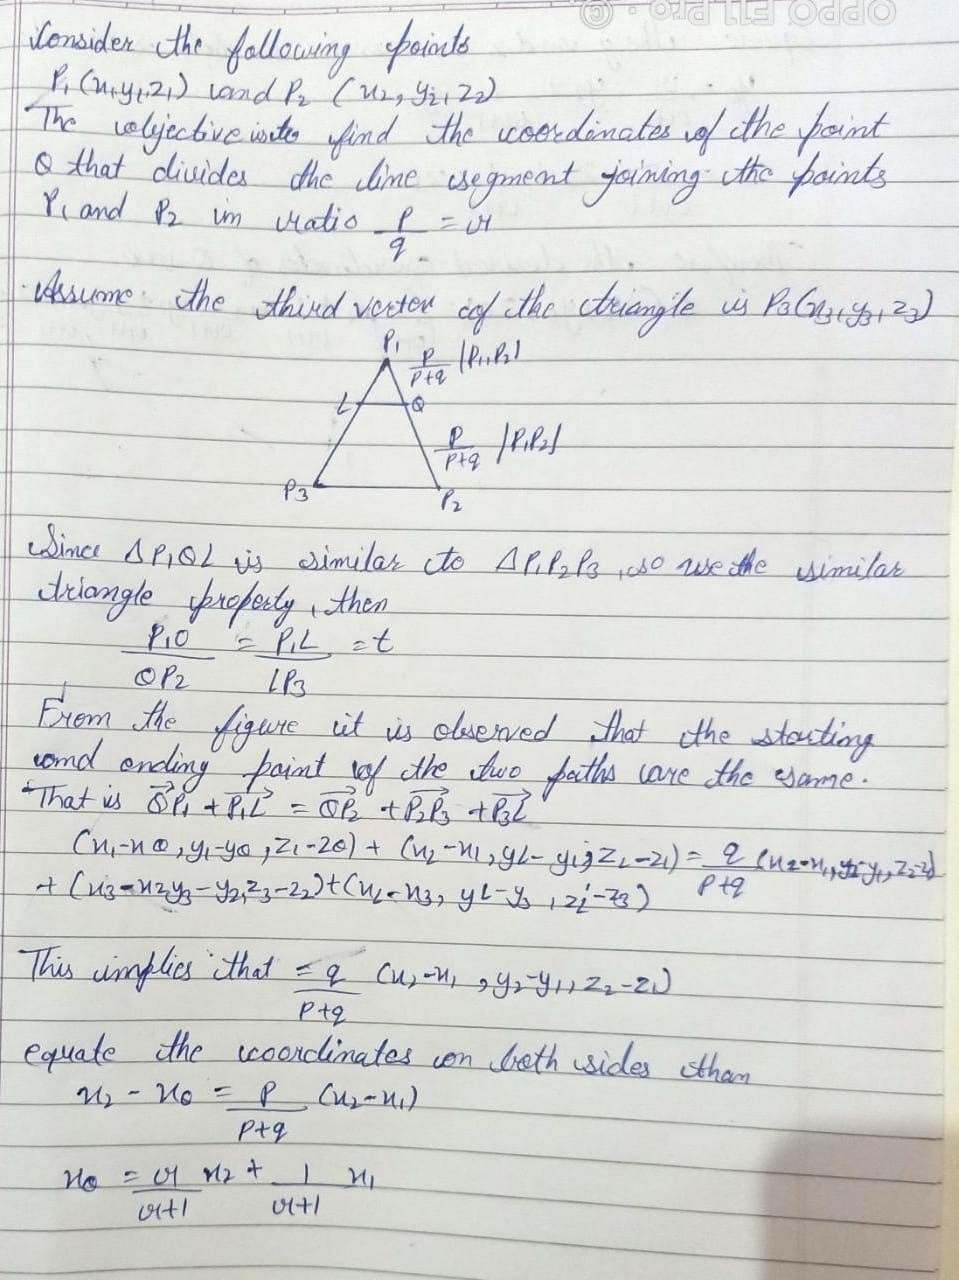 OPPO F11 Pro · ©
Consider the following points
P₁ (x₁y₁,z₁) and P₂ (x₂, y₂, z₂)
The objective is to find the coordinates of the point
Q that divides the line segment joining the points
P₁ and P₂ in ratio p/q = r
Assume the third vertex of the triangle is P₃(x₃, y₃, z₃)
P₁
p/p+q |P₁,P₂|
L Q
p/p+q |P₁P₂|
P₃ P₂
Since ΔP₁QL is similar to ΔP₁P₂P₃, so use the similar
triangle property, then
P₁Q/QP₂ = P₁L/LP₃ = t
From the figure it is observed that the starting
and ending point of the two paths are the same.
That is QP₁ + P₁L = QP₂ + P₂P₃ + P₃L
(x₁-xQ, y₁-yQ, z₁-zQ) + (xL-x₁, yL-y₁, zL-z₁) = q/p+q (x₂-x₁, y₂-y₁, z₂-z₁)
+ (x₃-x₂y₃-y₂,z₃-z₂)+(xL-x₃, yL-y₃, zL-z₃)
This implies that = q/p+q (x₂-x₁, y₂-y₁, z₂-z₁)
equate the coordinates on both sides than
x₂ - xQ = p/p+q (x₂-x₁)
xQ = r/r+1 x₂ + 1/r+1 x₁